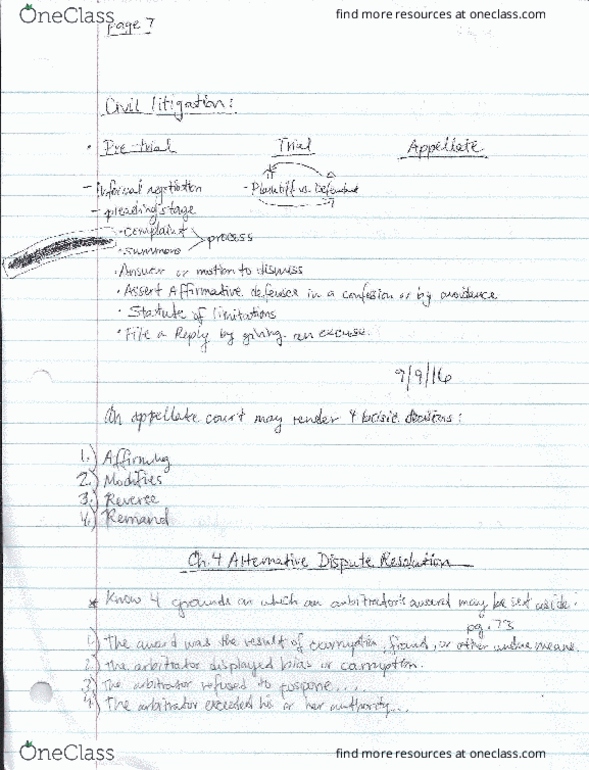 OneClass find more resources at oneclass.com
page 7
Civil litigation:
• Pre-trial Trial Appellate
- informal negotiation - Plaintiff vs. Defendant
- pleading stage
• complaint
process
• summons
• Answer or motion to dismiss
• Assert Affirmative defense in a confession or by avoidance
• Statute of limitations
• File a Reply by giving an excuse.
9/9/16
An appellate court may render 4 basic decisions:
1.) Affirming
2.) Modifies
3.) Reverse
4.) Remand
Ch.4 Alternative Dispute Resolution
* Know 4 grounds on which an arbitrator's award may be set aside:
pg. 73
1.) The award was the result of corruption, fraud, or other undue means.
2.) The arbitrator displayed bias or corruption.
3.) The arbitrator refused to pospone....
4.) The arbitrator exceeded his or her authority...
OneClass find more resources at oneclass.com